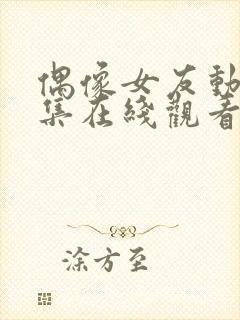 偶像女友動
集在綫觀看
涂方至